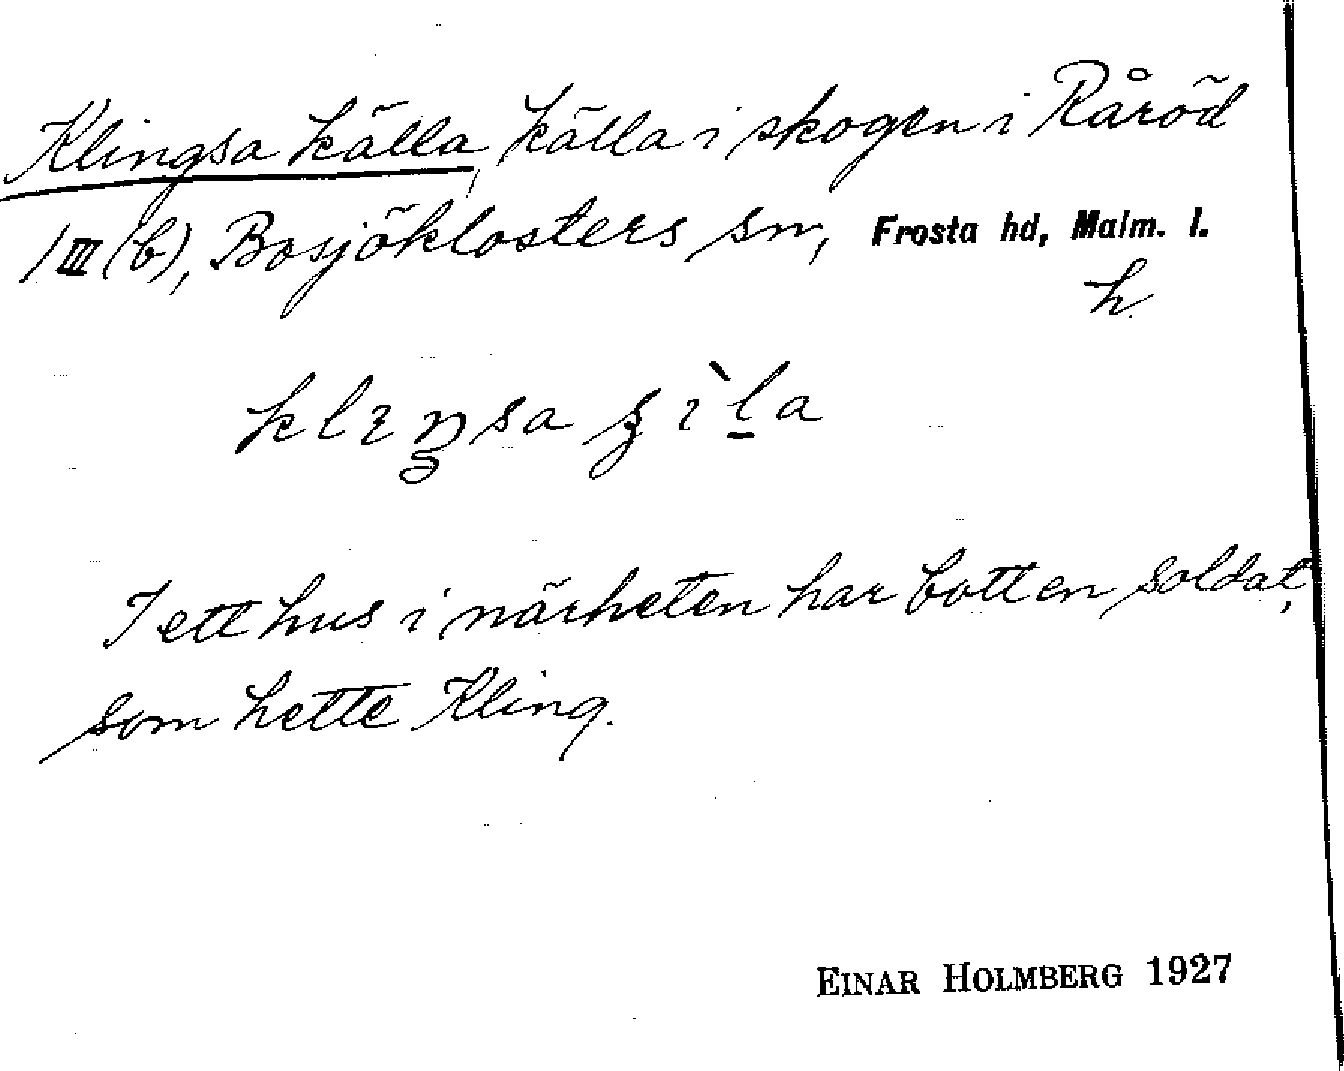 Klingsa källa, källa i skogen i Råröd
1 III (b), Bosjöklosters sn, Frosta hd, Malm. l.
h.
I ett hus i närheten har bott en soldat,
som hette Kling.
EINAR HOLMBERG 1927